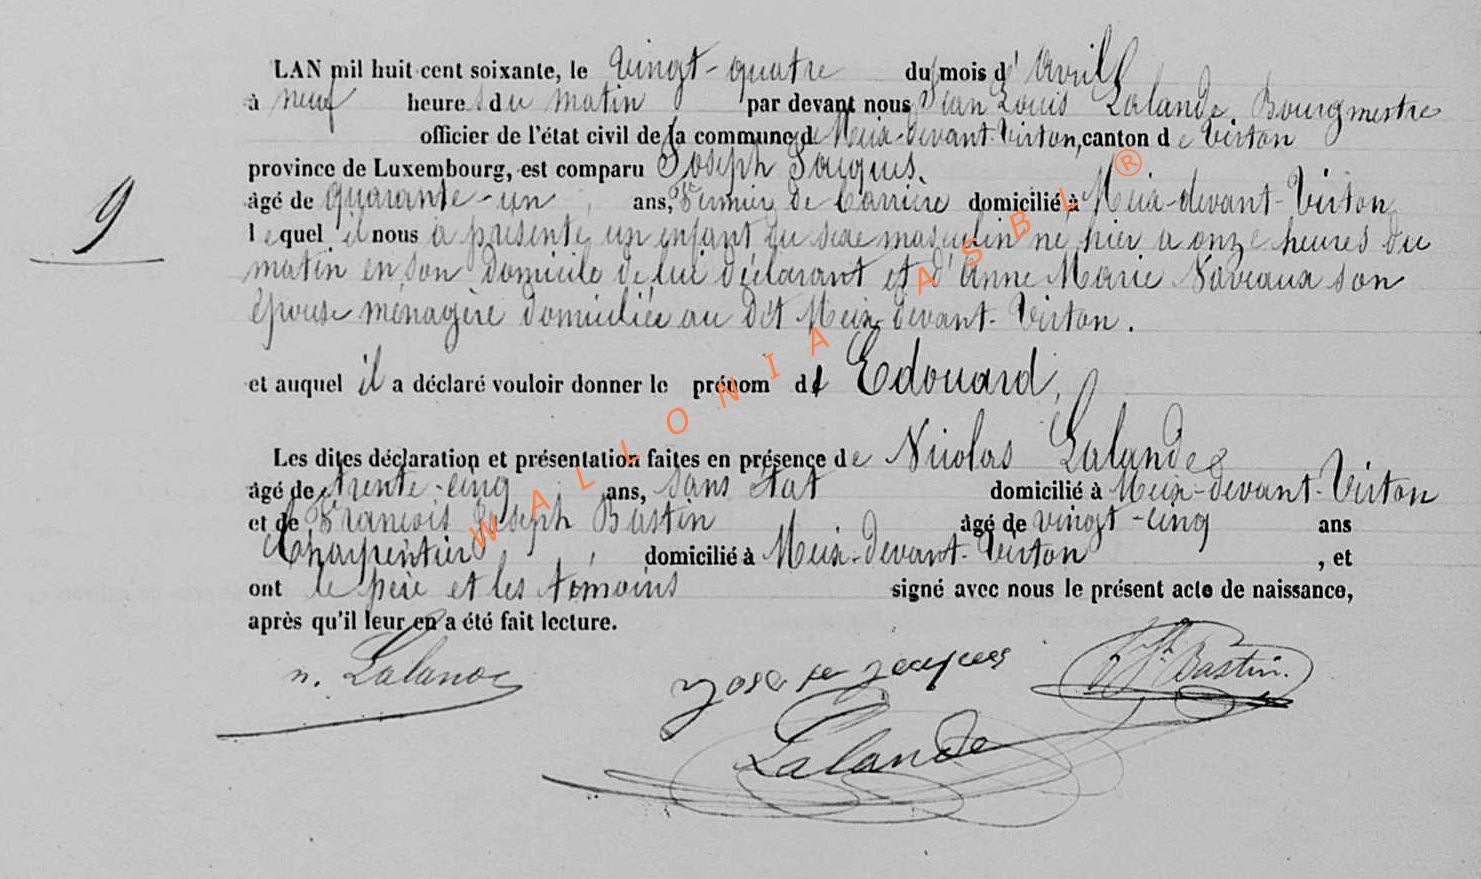 LAN mil huit cent soixante, le vingt-quatre du mois d'Avril
à neuf heures du matin par devant nous Jean Louis Lalande Bourgmestre
officier de l'état civil de la commune de Meix-devant-Virton, canton de Virton
province de Luxembourg, est comparu Joseph Jacques.
âgé de quarante-un ans, Fermier de Carrière domicilié à Meix-devant-Virton
9
lequel il nous a présenté un enfant du sexe masculin né hier à onze heures du
matin en son domicile de lui déclarant et d'Anne Marie Naveaux son
épouse ménagère domiciliée au dit Meix-devant-Virton.
et auquel il a déclaré vouloir donner le prénom d' Edouard,
Les dites déclaration et présentation faites en présence de Nicolas Lalande
âgé de trente-cinq ans, sans état domicilié à Meix-devant-Virton
et de François Joseph Bastin âgé de vingt-cinq ans
Charpentier, domicilié à Meix-devant-Virton, et
ont le père et les témoins signé avec nous le présent acte de naissance,
après qu'il leur en a été fait lecture.
n. Lalande Joseph Jacques Bastin.
Lalande
WALLONIA ASBL ®